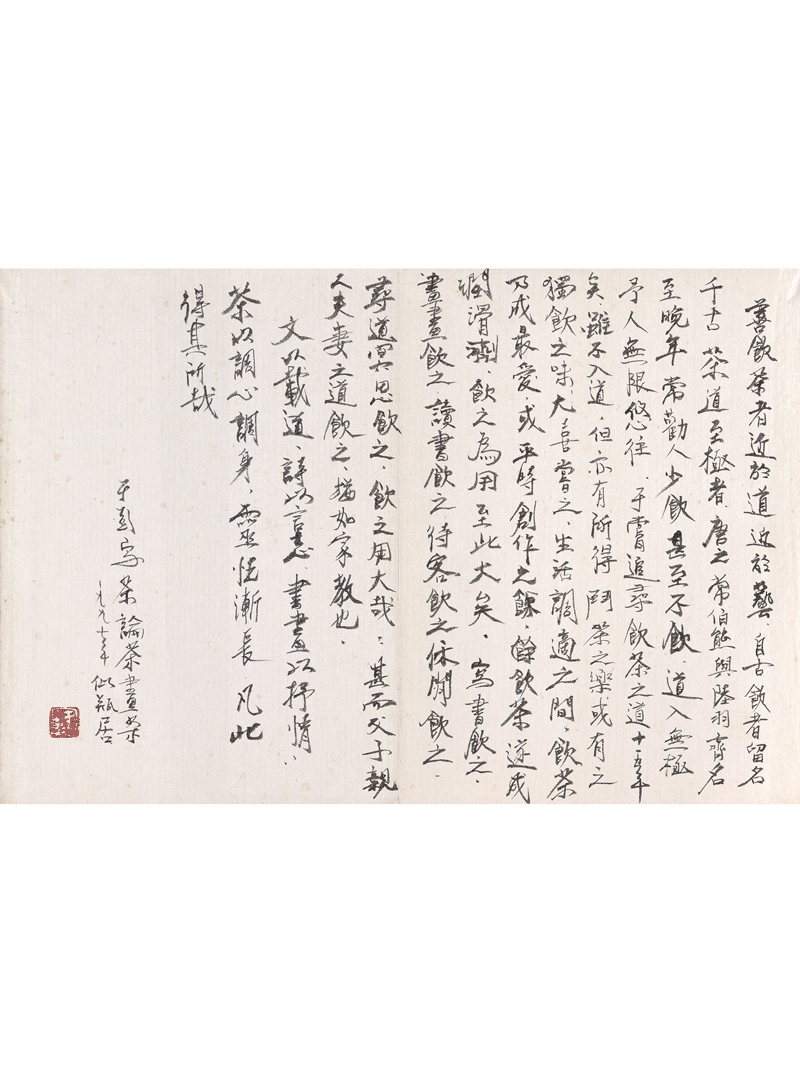 善飲茶者近於道近於藝自古飲者留名
千古茶道至極者唐之常伯熊與陸羽齊名
至晚年常勸人少飲甚至不飲道入無極
予人無限悠往于嘗追尋飲茶之道十五年
矣雖不入道但亦有所得鬥茶之樂或有之
獨飲之味大喜嘗之生活調適之間飲茶
乃成最愛或平時創作之餘飲茶遂成
潤滑劑飲之為用至此大矣寫書飲之
畫畫飲之讀書飲之待客飲之休閒飲之
尋道冥思飲之飲之用大哉甚而父子親
人夫妻之道飲之猶如家教也
文以載道詩以言志書畫以抒情
茶以調心調身靈性漸長凡此
得其所哉
于彭寫茶論茶畫茶
一九九七年似瓶居